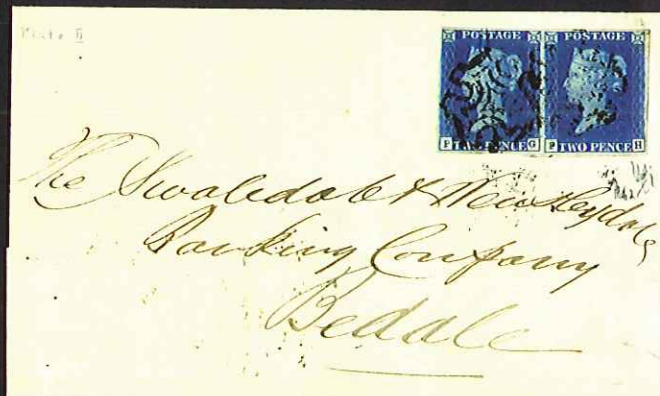 POSTAGE POSTAGE
P TWO PENCE G P TWO PENCE H
The Swaledale & Wensleydale
Banking Company
Bedale